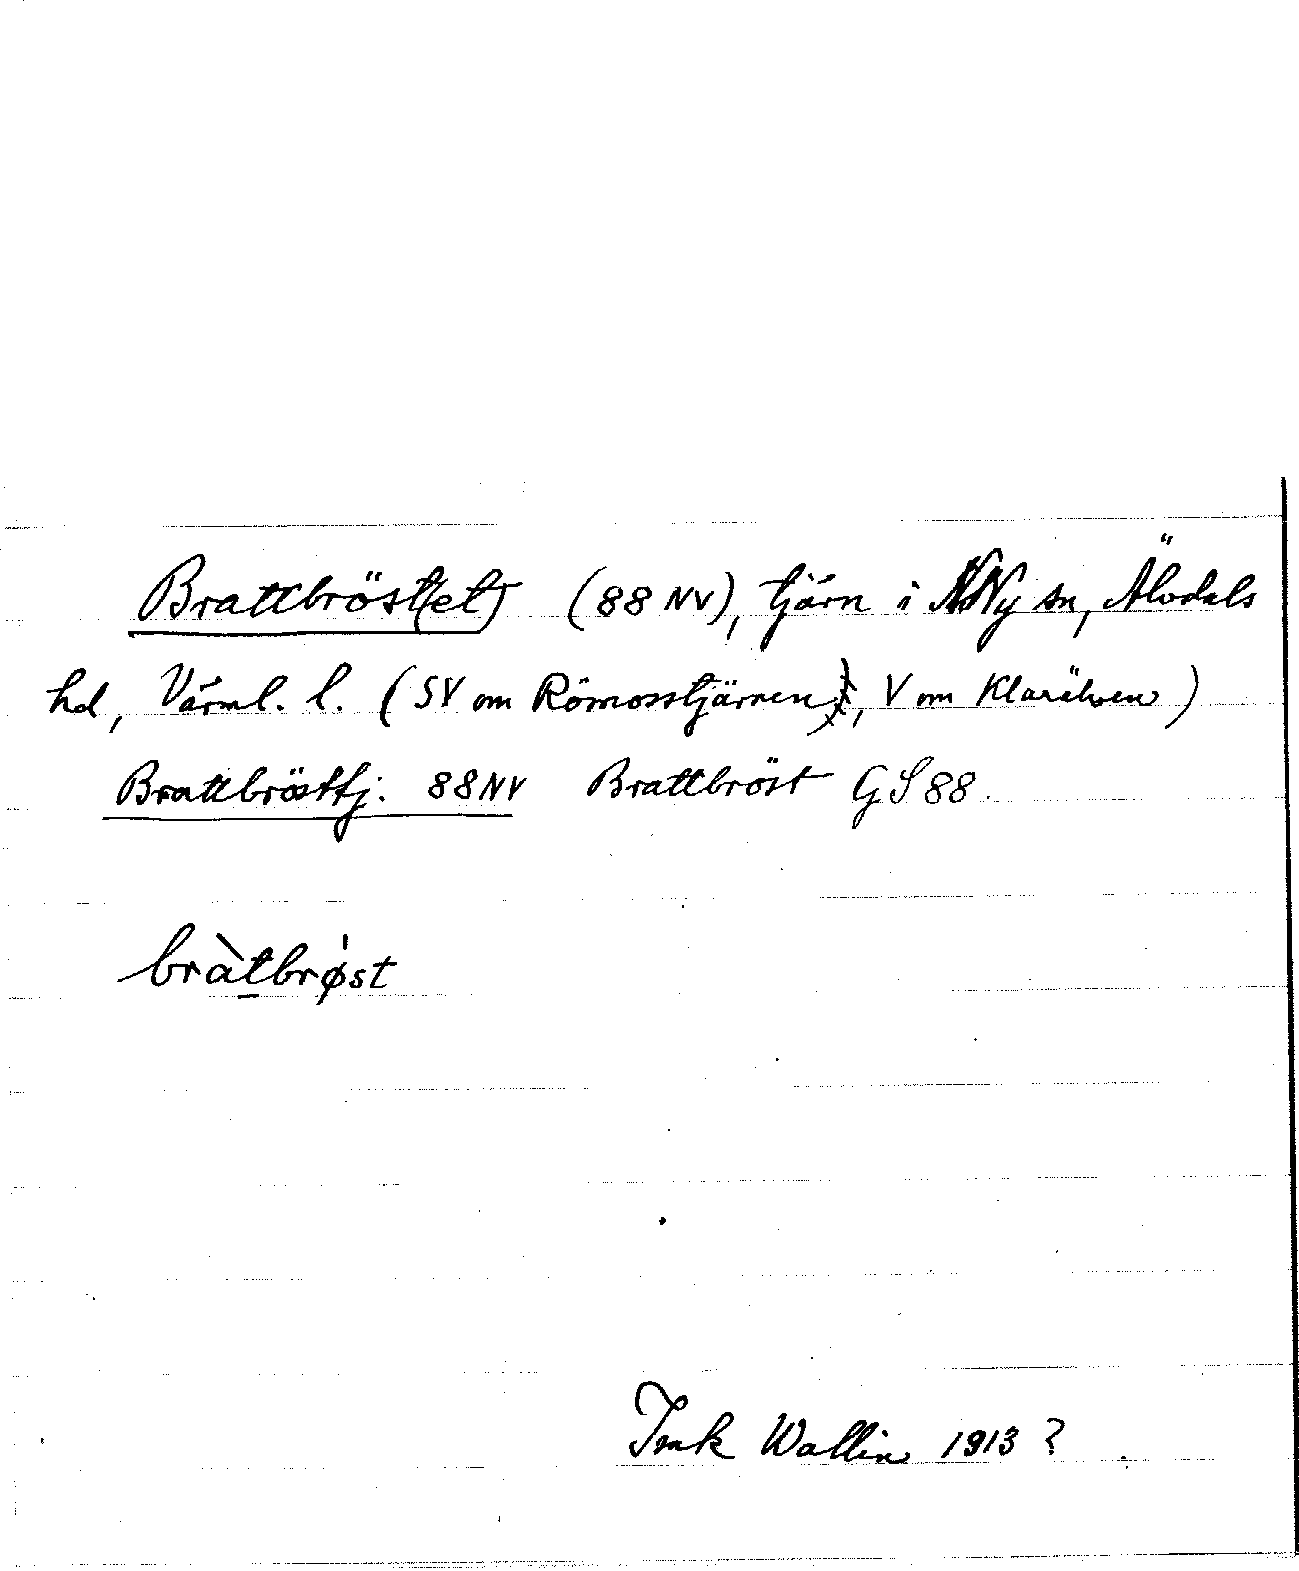 Brattbröst(et) (88 NV), tjärn i N Ny sn, Älvdals
hd, Värml. l. (SV om Römosstjärnen, V om Klarälven)
Brattbrösttj. 88 NV Brattbröst GS 88.
bràtbrø̍st
Wallin 1913?